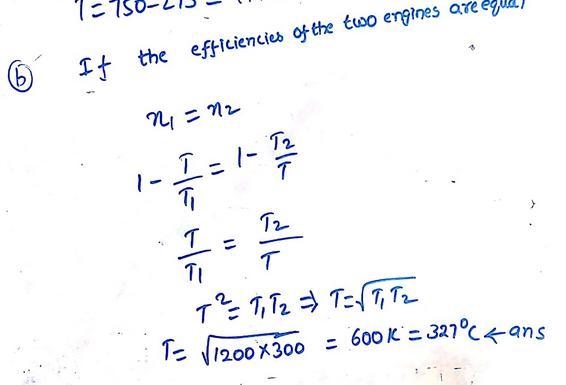 T=750-273=
(b) If the efficiencies of the two engines are equal
n1 = n2
1 - T/T1 = 1 - T2/T
T/T1 = T2/T
T² = T1T2 ⇒ T=√T1T2
T= √1200×300 = 600K = 327°C ← ans